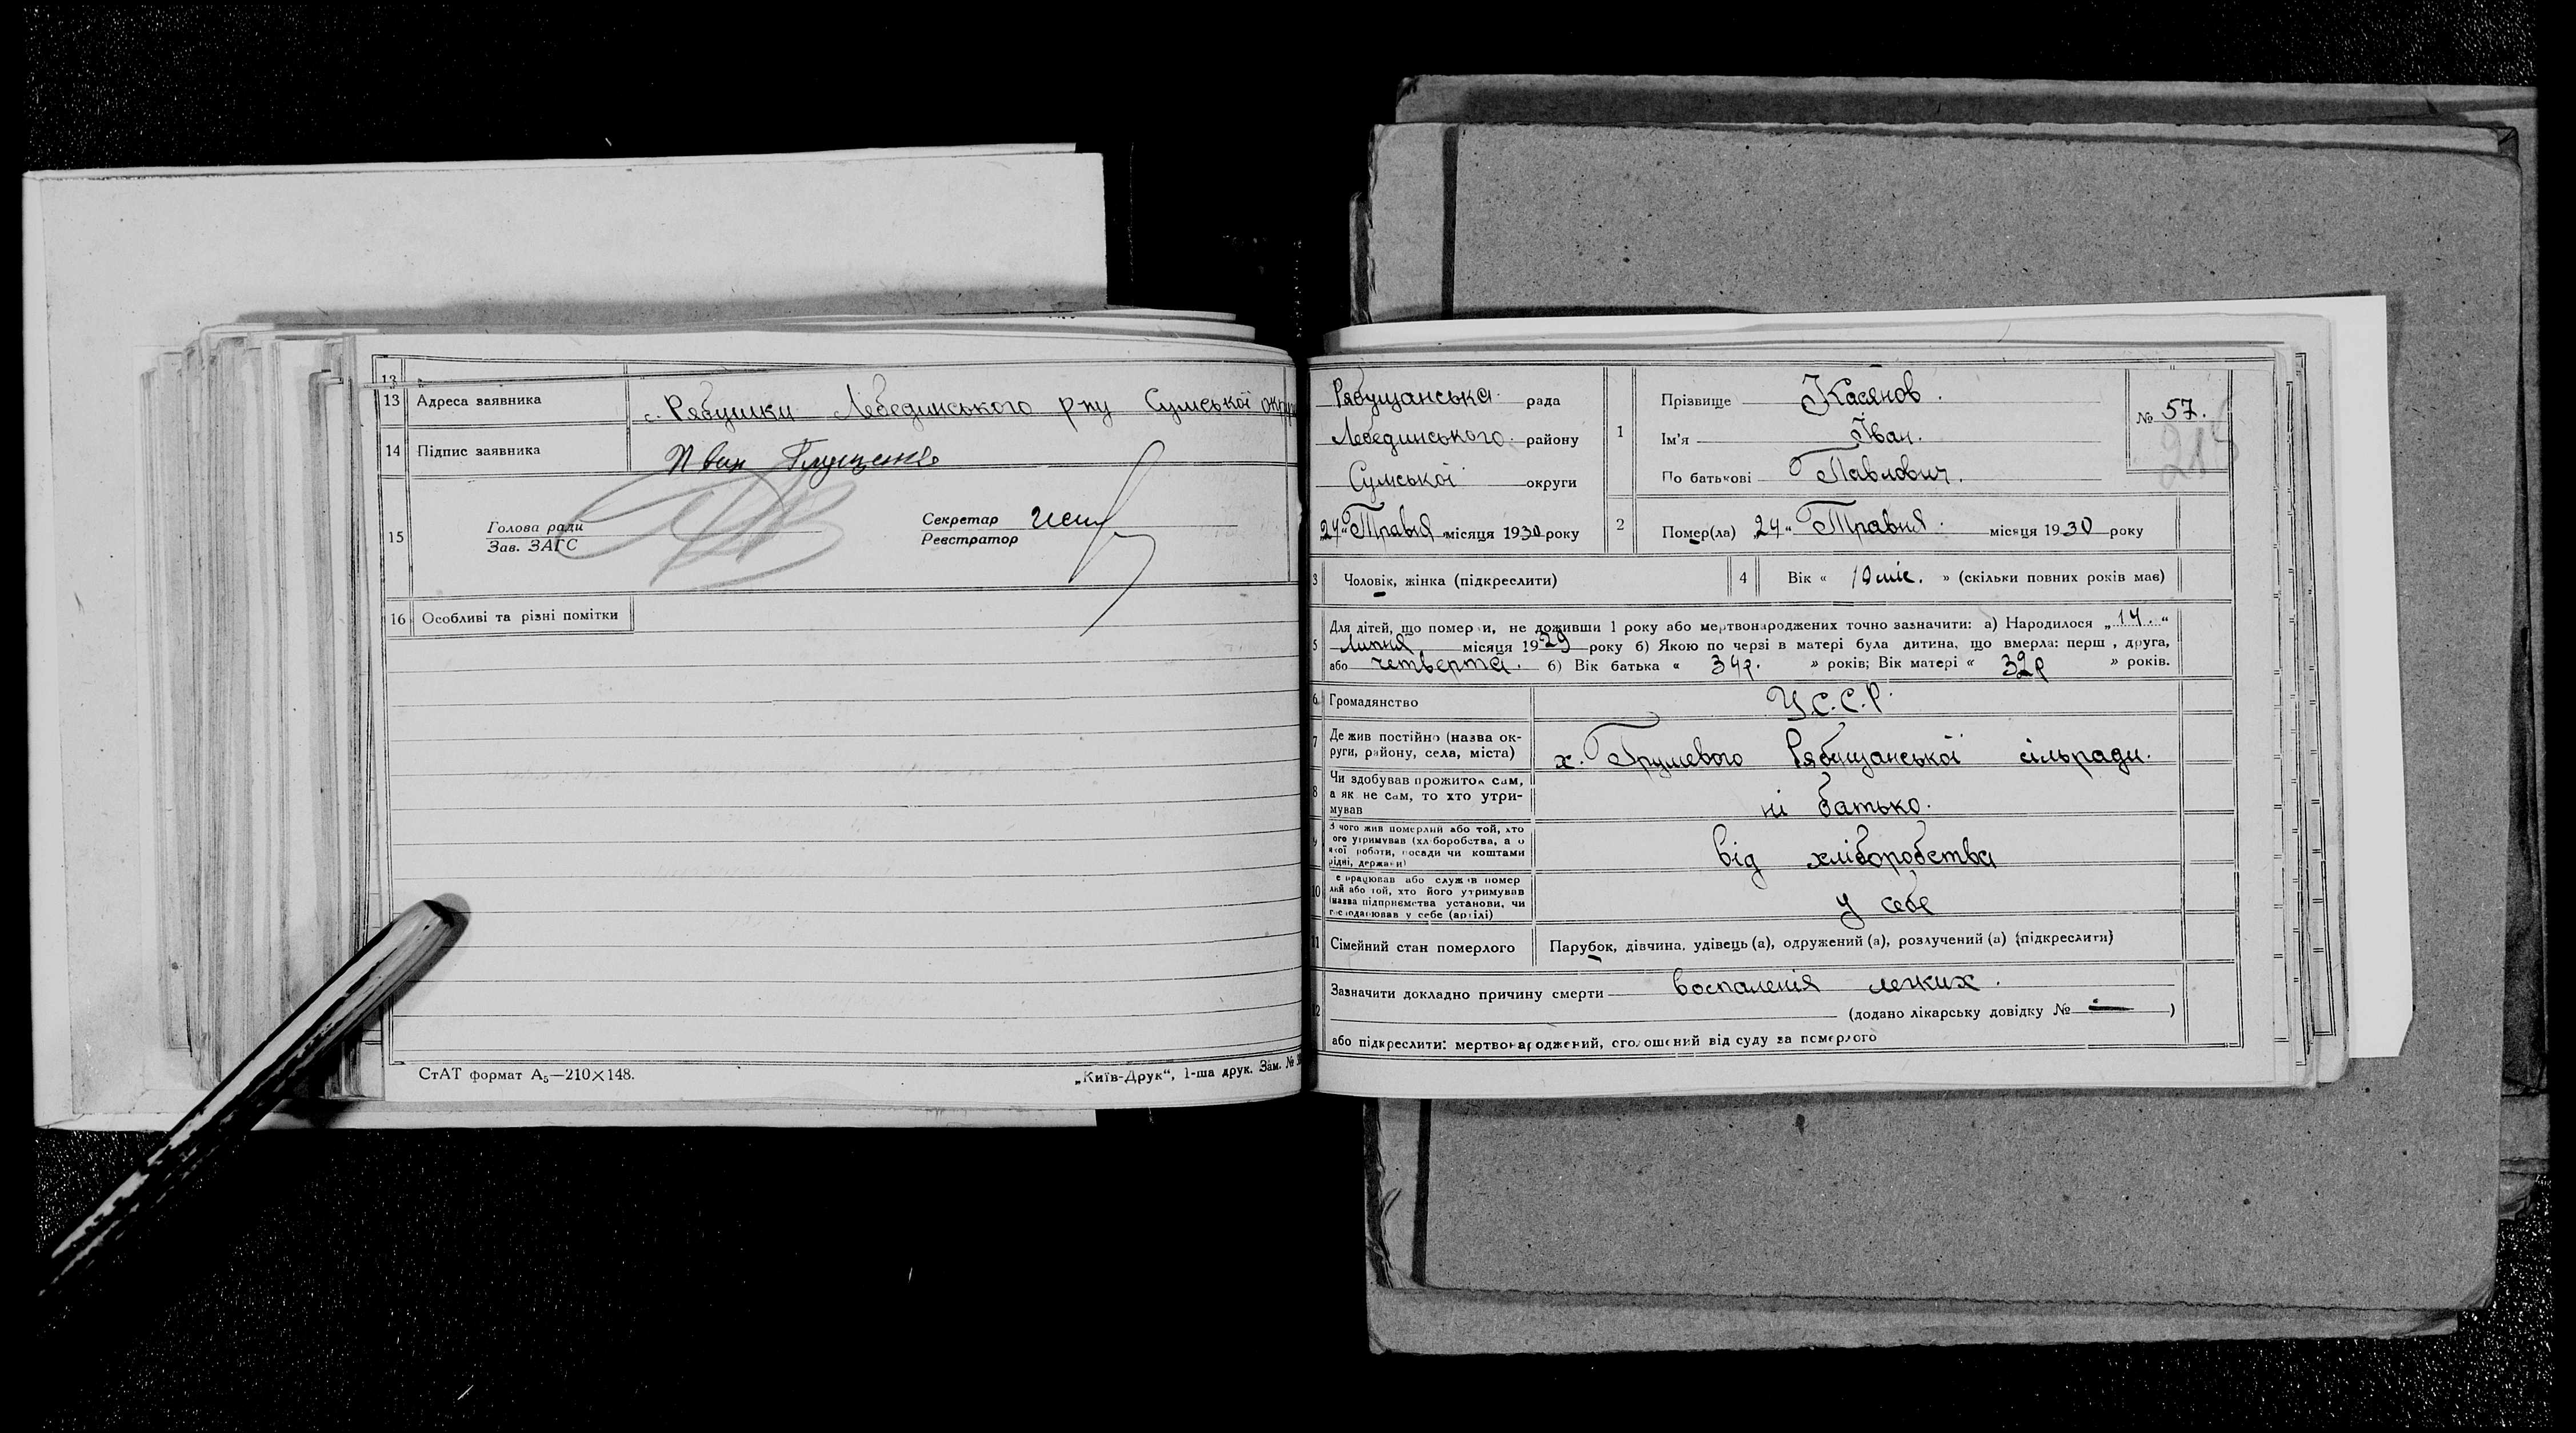 13
13 Адреса заявника с. Рябушки Лебединського р-ну Сумської окру
14 Підпис заявника Иван Глущенко
15 Голова ради
Зав. ЗАГС
Секретар
Реєстратор
16 Особливі та різні помітки
СтАТ формат А5—210×148.
„Київ-Друк“, 1-ша друк. Зам. №
Рябущанська рада
Лебединського району
Сумської округи
24 „ Травня місяця 1930 року
1 Прізвище Касянов.
Ім'я Іван.
По батькові Павлович.
№ 57.
2 Помер(ла) „24“ Травня місяця 1930 року
3 Чоловік, жінка (підкреслити)
4 Вік « 10 міс. » (скільки повних років мав)
5 Для дітей, що померли, не доживши 1 року або мертвонароджених точно зазначити: а) Народилося „14.“
Липня місяця 1929 року б) Якою по черзі в матері була дитина, що вмерла: перш , друга,
або четверта. б) Вік батька « 34р. » років; Вік матері « 32р » років.
6 Громадянство У.С.С.Р.
7 Де жив постійно (назва ок-
руги, району, села, міста) х. Грушевого Рябущанської сільради.
8 Чи здобував прожиток сам,
а як не сам, то хто утри-
мував ні батько.
З чого жив померлий або той, хто
ого утримував (хліборобства, а о
якої роботи, посади чи коштами
рідні, держави) від хліборобства
10 е працював або служив помер
лий або той, хто його утримував
(назва підприємства установи, чи
господарював у себе (артілі) у себе
11 Сімейний стан померлого Парубок, дівчина, удівець (а), одружений (а), розлучений (а) (підкреслити)
12 Зазначити докладно причину смерти воспаленія легких.
(додано лікарську довідку № — )
або підкреслити: мертвонароджений, оголошений від суду за померлого